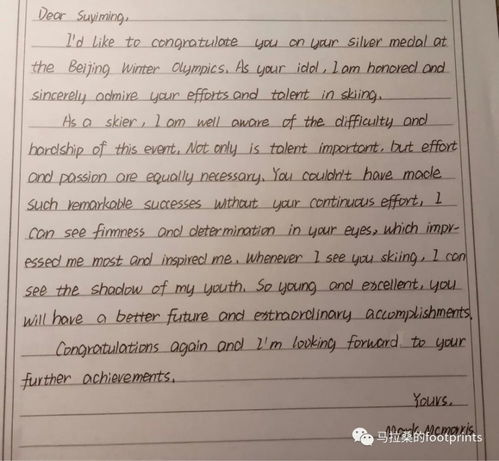 Dear Suyiming,
I'd like to congratulate you on your silver medal at
the Beijing Winter Olympics. As your idol, I am honored and
sincerely admire your efforts and talent in skiing.
As a skier, I am well aware of the difficulty and
hardship of this event. Not only is talent important, but effort
and passion are equally necessary. You couldn't have made
such remarkable successes without your continuous effort, I
can see firmness and determination in your eyes, which impr-
essed me most and inspired me. Whenever I see you skiing, I can
see the shadow of my youth. So young and excellent, you
will have a better future and extraordinary accomplishments.
Congratulations again and I'm looking forward to your
further achievements.
Yours,
Mark Mcmorris
马拉桑的footprints